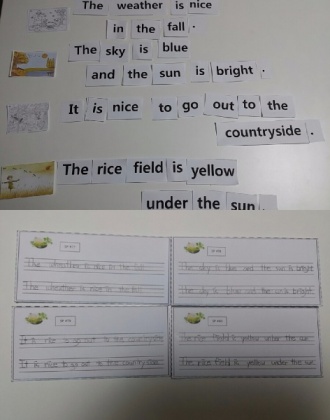 The weather is nice
in the fall.
The sky is blue
and the sun is bright.
It is nice to go out to the
countryside.
The rice field is yellow
under the sun.
The weather is nice in the fall.
The weather is nice in the fall.
The sky is blue and the sun is bright
The sky is blue and the sun is bright
It is nice to go out to the countryside
It is nice to go out to the countryside
The rice field is yellow under the sun.
The rice field is yellow under the sun.